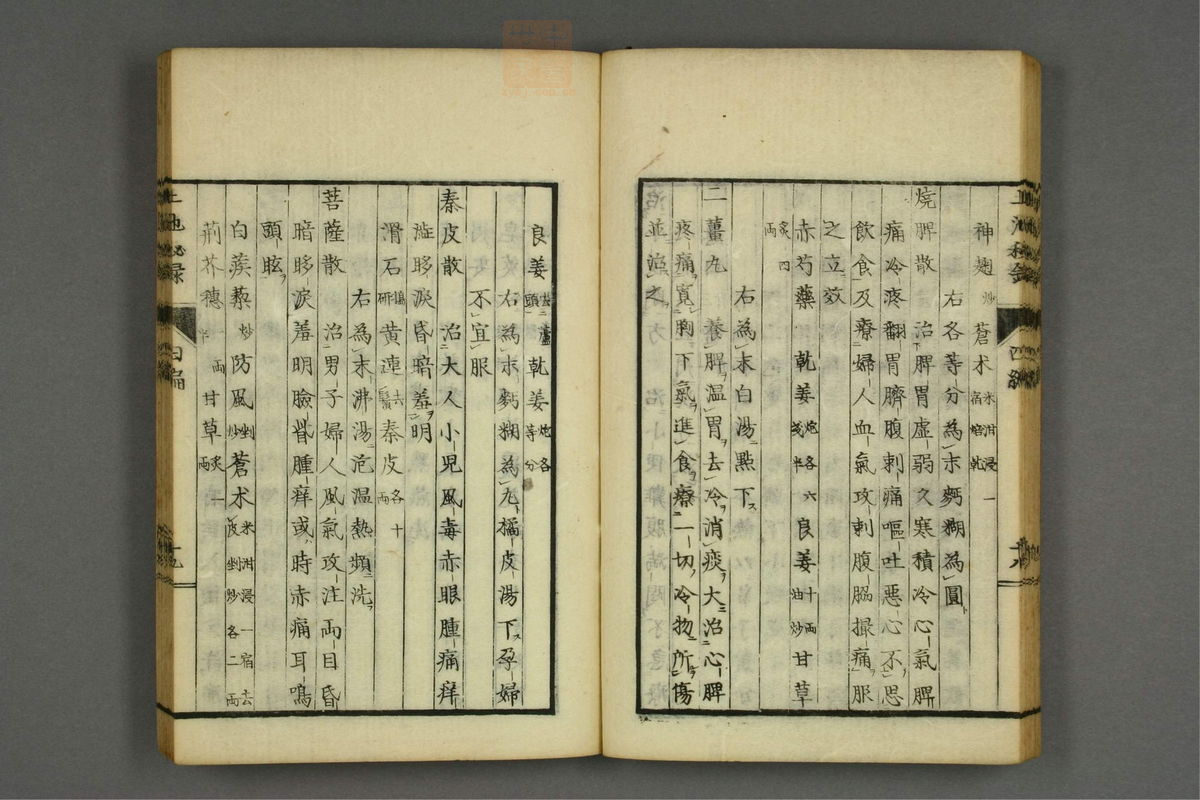 神麹炒 蒼术米泔浸一宿焙乾
右各等分為末麪糊為圓
燒脾散 治脾胃虛弱久寒積冷心氣脾
痛冷疼翻胃臍腹刺痛嘔吐惡心不思
飲食及療婦人血氣攻刺腹脇撮痛服
之立效
赤芍藥 乾姜炮各六 良姜十兩油炒 甘草
炙四兩
右為末白湯點下
二薑丸 養脾溫胃去冷消痰大治心脾
疼痛寬胸下氣進食療一切冷物所傷
並治之
良姜去蘆頭 乾姜炮各等分
右為末麪糊為丸橘皮湯下孕婦
不宜服
秦皮散 治大人小児風毒赤眼腫痛痒
澁眵淚昏暗羞明
滑石 黄連去鬚 秦皮各十兩
右為末沸湯泡温熱頻洗
菩薩散 治男子婦人風氣攻注両目昏
暗眵淚羞明瞼眥腫痒或時赤痛耳鳴
頭眩
白蒺藜炒 防風剉炒 蒼术米泔浸一宿去皮剉炒各二両
荊芥穗一両半 甘草炙一両